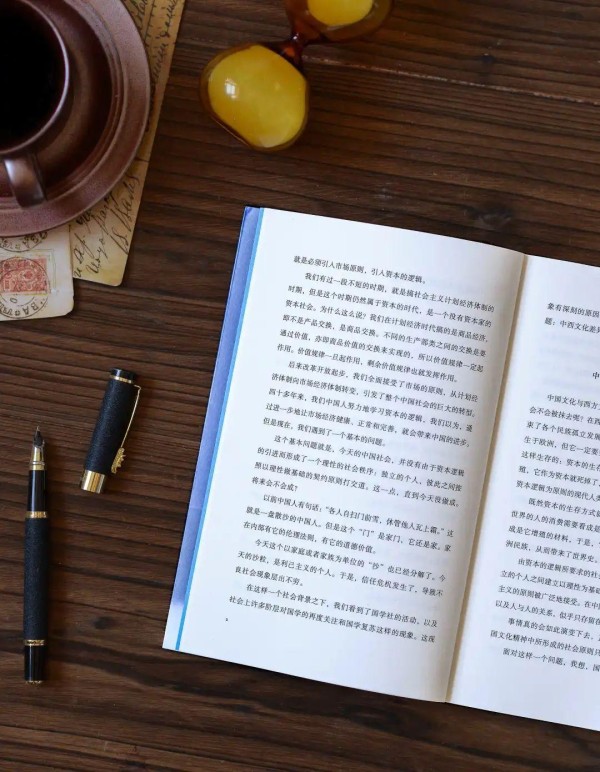 就是必须引入市场原则，引入资本的逻辑。
我们有过一段不短的时期，就是搞社会主义计划经济体制的
时期，但是这个时期仍然属于资本的时代，是一个没有资本家的
资本社会。为什么这么说？我们在计划经济时代搞的是商品经济，
即不是产品交换，是商品交换。不同的生产部类之间的交换是要
通过价值，亦即商品价值的交换来实现的，所以价值规律一定起
作用。价值规律一旦起作用，剩余价值规律也就发挥作用。
后来改革开放起步，我们全面接受了市场的原则，从计划经
济体制向市场经济体制转变，引发了整个中国社会的巨大的转型。
四十多年来，我们中国人努力地学习资本的逻辑。我们以为，通
过进一步地让市场经济健康、正常和完善，就会带来中国的进步，
但是现在，我们遇到了一个基本的问题。
这个基本问题就是，今天的中国社会，并没有由于资本逻辑
的引进而形成了一个理性的社会秩序：独立的个人，彼此之间按
照以理性做基础的契约原则打交道。这一点，直到今天没做成。
将来会不会成？
以前中国人有句话：“各人自扫门前雪，休管他人瓦上霜。”这
就是一盘散沙的中国人。但是这个“门”是家门，它还是家。家
在内部有它的伦理法则，有它的道德价值。
今天这个以家庭或者家族为单位的“沙”也已经分解了。今
天的沙粒，是利己主义的个人。于是，信任危机发生了，导致不
良社会现象层出不穷。
在这样一个社会背景之下，我们看到了国学社的活动，以及
社会上许多阶层对国学的再度关注和国学复苏这样的现象。这探
象有深刻的原因
题：中西文化差异
中
中国文化与西方文
会不会被抹去呢？在西
束了各个民族孤立发展
生于欧洲，但它一定要
这样生存的：资本的生存
殖，它作为资本就死掉了
资本逻辑为原则的现代人类
既然资本的生存方式就
世界的人的消费需要看成是
成是它增道的材料。于是，
洲民族，从而带来了世界史。
由资本的逻辑所要求的社会
立的个人之间建立以理性为基础
主义的原则被广泛地接受。在中
以及人与人的关系，似乎只存留在
事情真的会如此演变下去，
国文化精神中所形成的社会原则只
面对这样一个问题，我想，国